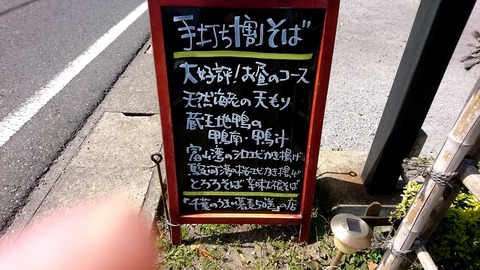 手打ち割そば
大好評!お昼のコース
天然海老の天もり
蔵王地鴨の
鴨南・鴨汁
富山湾のシロエビかき揚げ
駿河湾の桜エビかき揚げ
とろろそば 辛味大根そば
「千葉のうまい蕎麦75選」の店